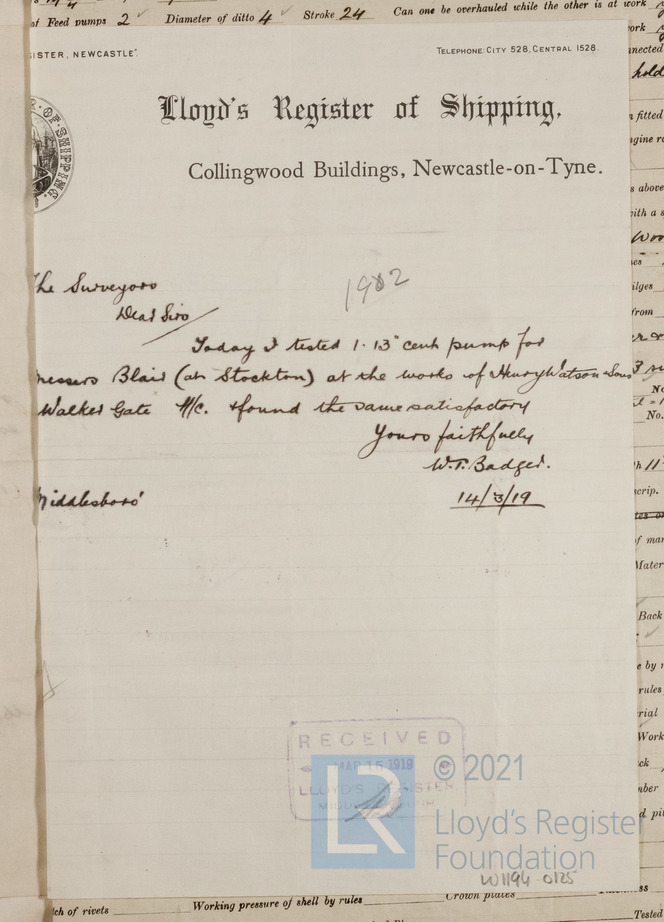 of Feed pumps 2 Diameter of ditto 4 Stroke 24 Can one be overhauled while the other is at work
ISTER, NEWCASTLE".
TELEPHONE: CITY 528, CENTRAL 1528.
Lloyd's Register of Shipping,
Collingwood Buildings, Newcastle-on-Tyne.
OF SHIPPING
1982
The Surveyors
Dear Sirs
Today I tested 1. 13" cent pump for
Messers Blair (at Stockton) at the works of Henry Watson & Sons
Walker Gate N/c. & found the same satisfactory
Yours faithfully
W.T. Badger.
Middlesboro'
14/3/19
RECEIVED
MAR 15 1919
LLOYD'S REGISTER
© 2021
LR
Lloyd's Register
Foundation
W1194-0125
tch of rivets Working pressure of shell by rules Crown plates
Tested
nected
hold
fitted
s above
with a s
ilges
from
No.
crip.
of
Mater
Back
e by
rules
rial
Work